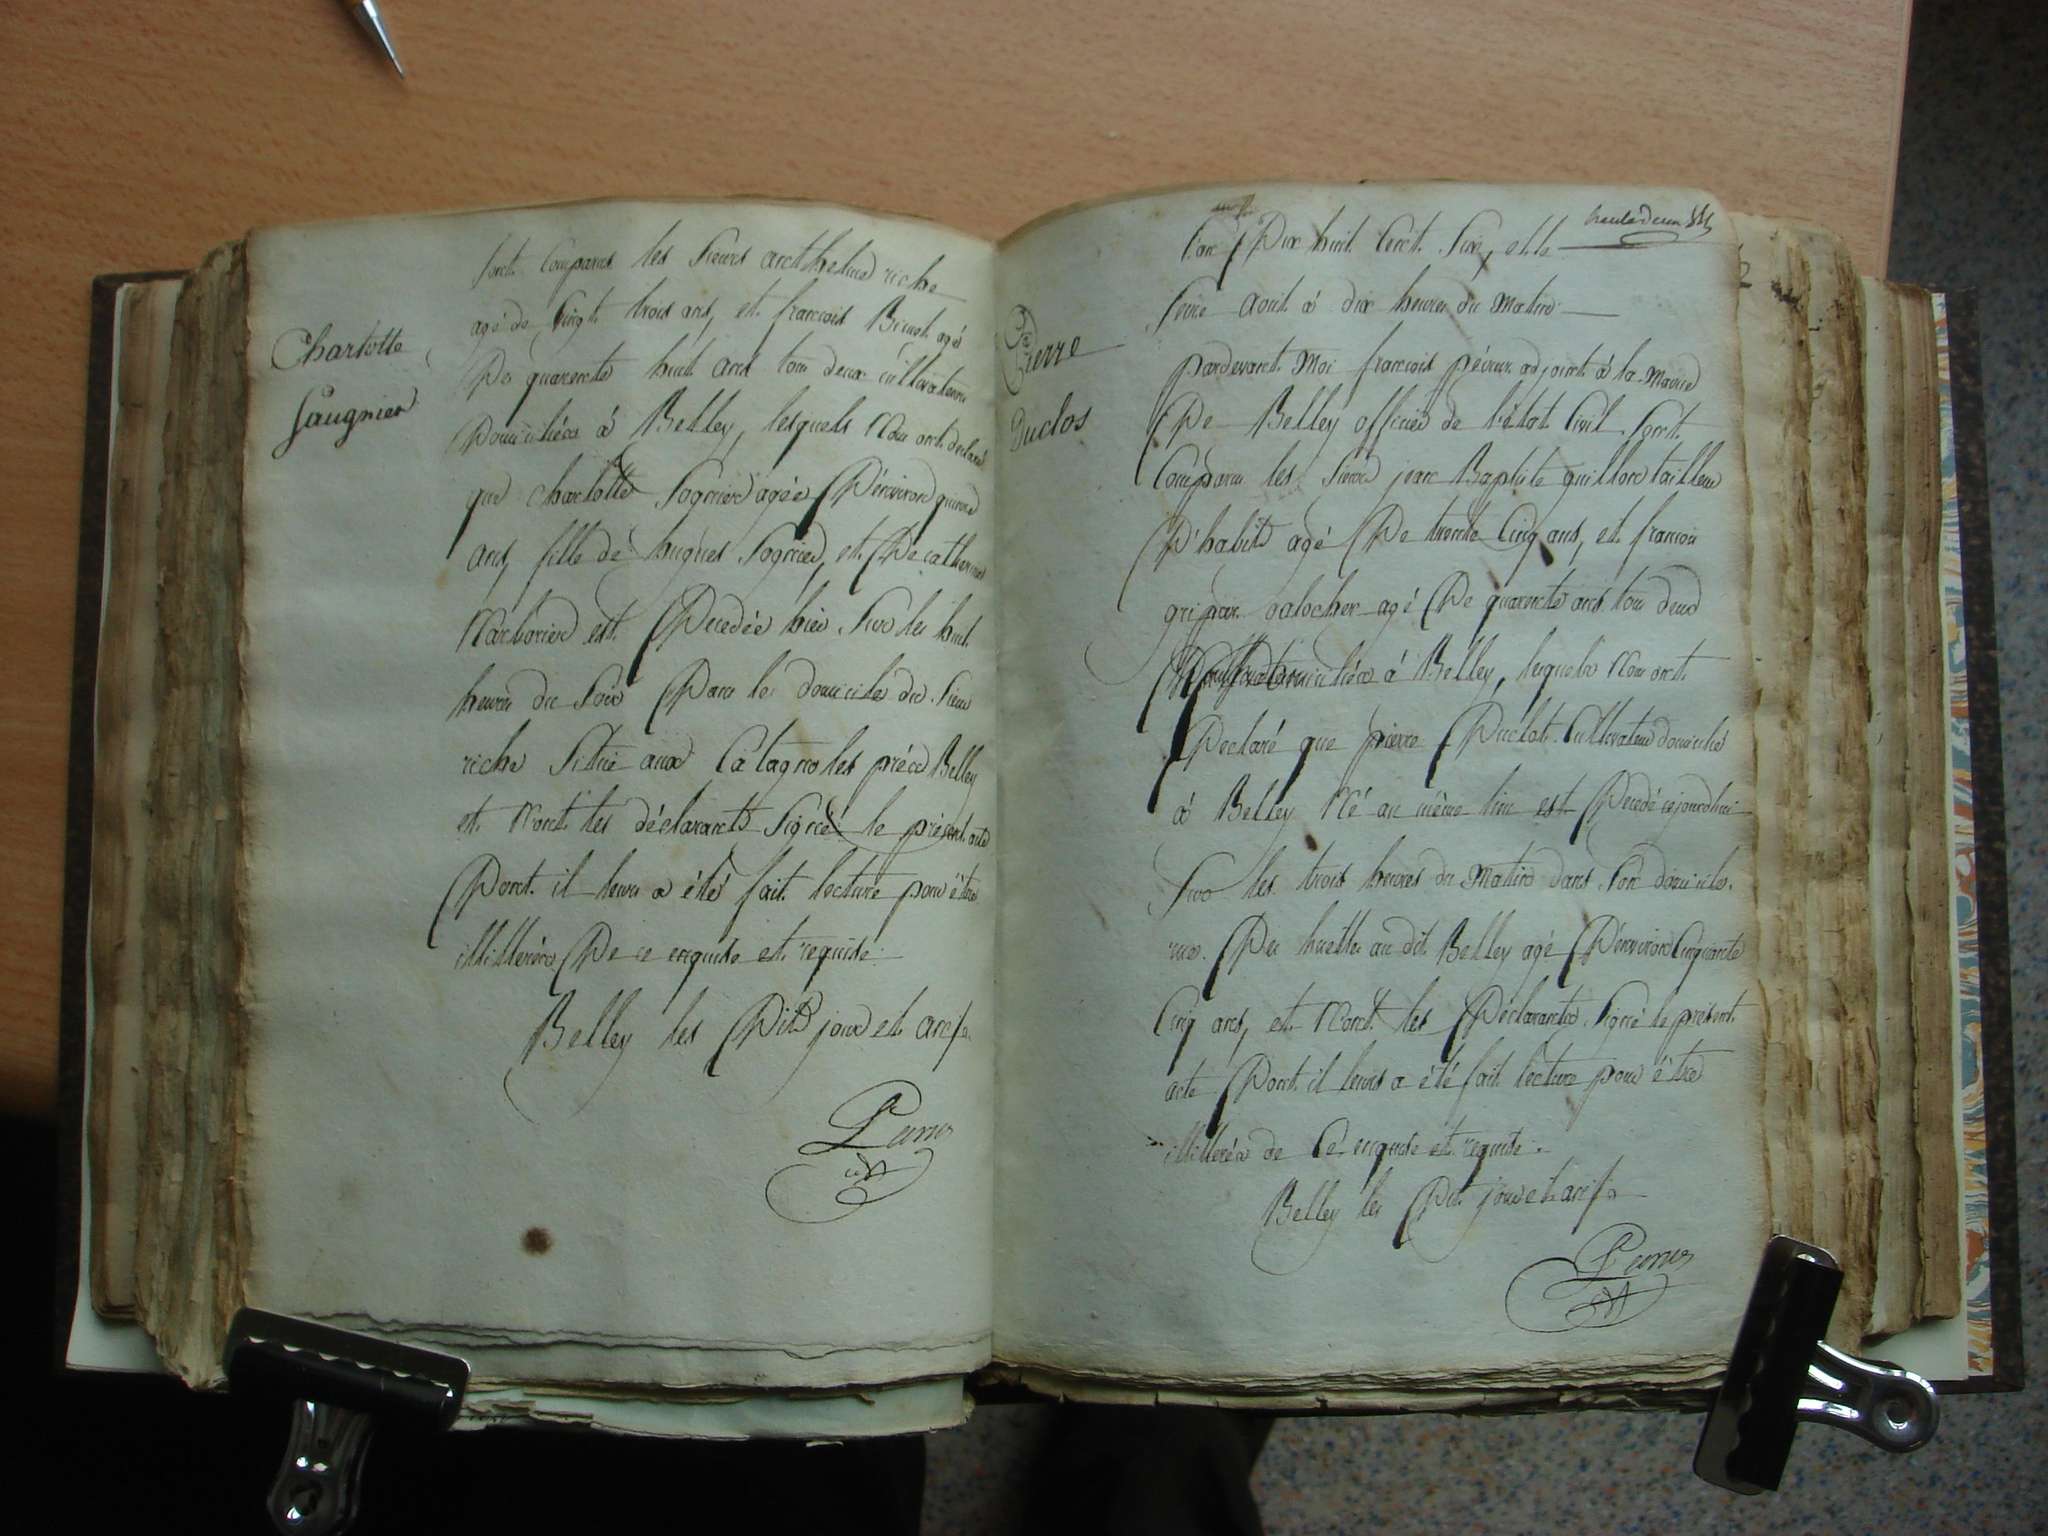 Charlotte
Saugnier
sont Comparus les Sieurs anthelme riche
agé de Vingt trois ans, et francois Brunet agé
De quarente huit ans tous deux cultivateurs
Domiciliés à Belley, lesquels Nous ont declaré
que charlotte Sognier agée D'environ quinze
ans, fille de hugues Sognier, et De catherine
est Decedée hier Sur les huit
heures du Soir Dans le domicile du Sieur
riche Situé aux Catagnoles près Belley
et N'ont les déclarants Signé le présent acte
Dont il leurs a été fait lecture pour être
illitterés De ce enquis et requis.
Belley les Dits jour et an
Pierre
Duclos
L'an Dix huit Cent Six, et le
Seize aout à dix heures du Matin
pardevant Moi francois adjoint à la Mairie
De Belley officier de l'état Civil Sont
Comparus les Sieurs jean Baptiste guillon tailleur
D'habits agé De trente Cinq ans, et francois
galocher agé De quarente ans tous deux
Domiciliés à Belley, lesquels Nous ont
Declaré que pierre Duclot Cultivateur domicilié
à Belley Né au même lieu est Decedé cejourdhui
Sur les trois heures du Matin dans Son domicile
rue Du au dit Belley agé D'environ Cinquante
Cinq ans, et N'ont les Déclarants Signé le présent
acte Dont il leurs a été fait lecture pour être
illitterés de Ce enquis et requis.
Belley les Dit jour et an